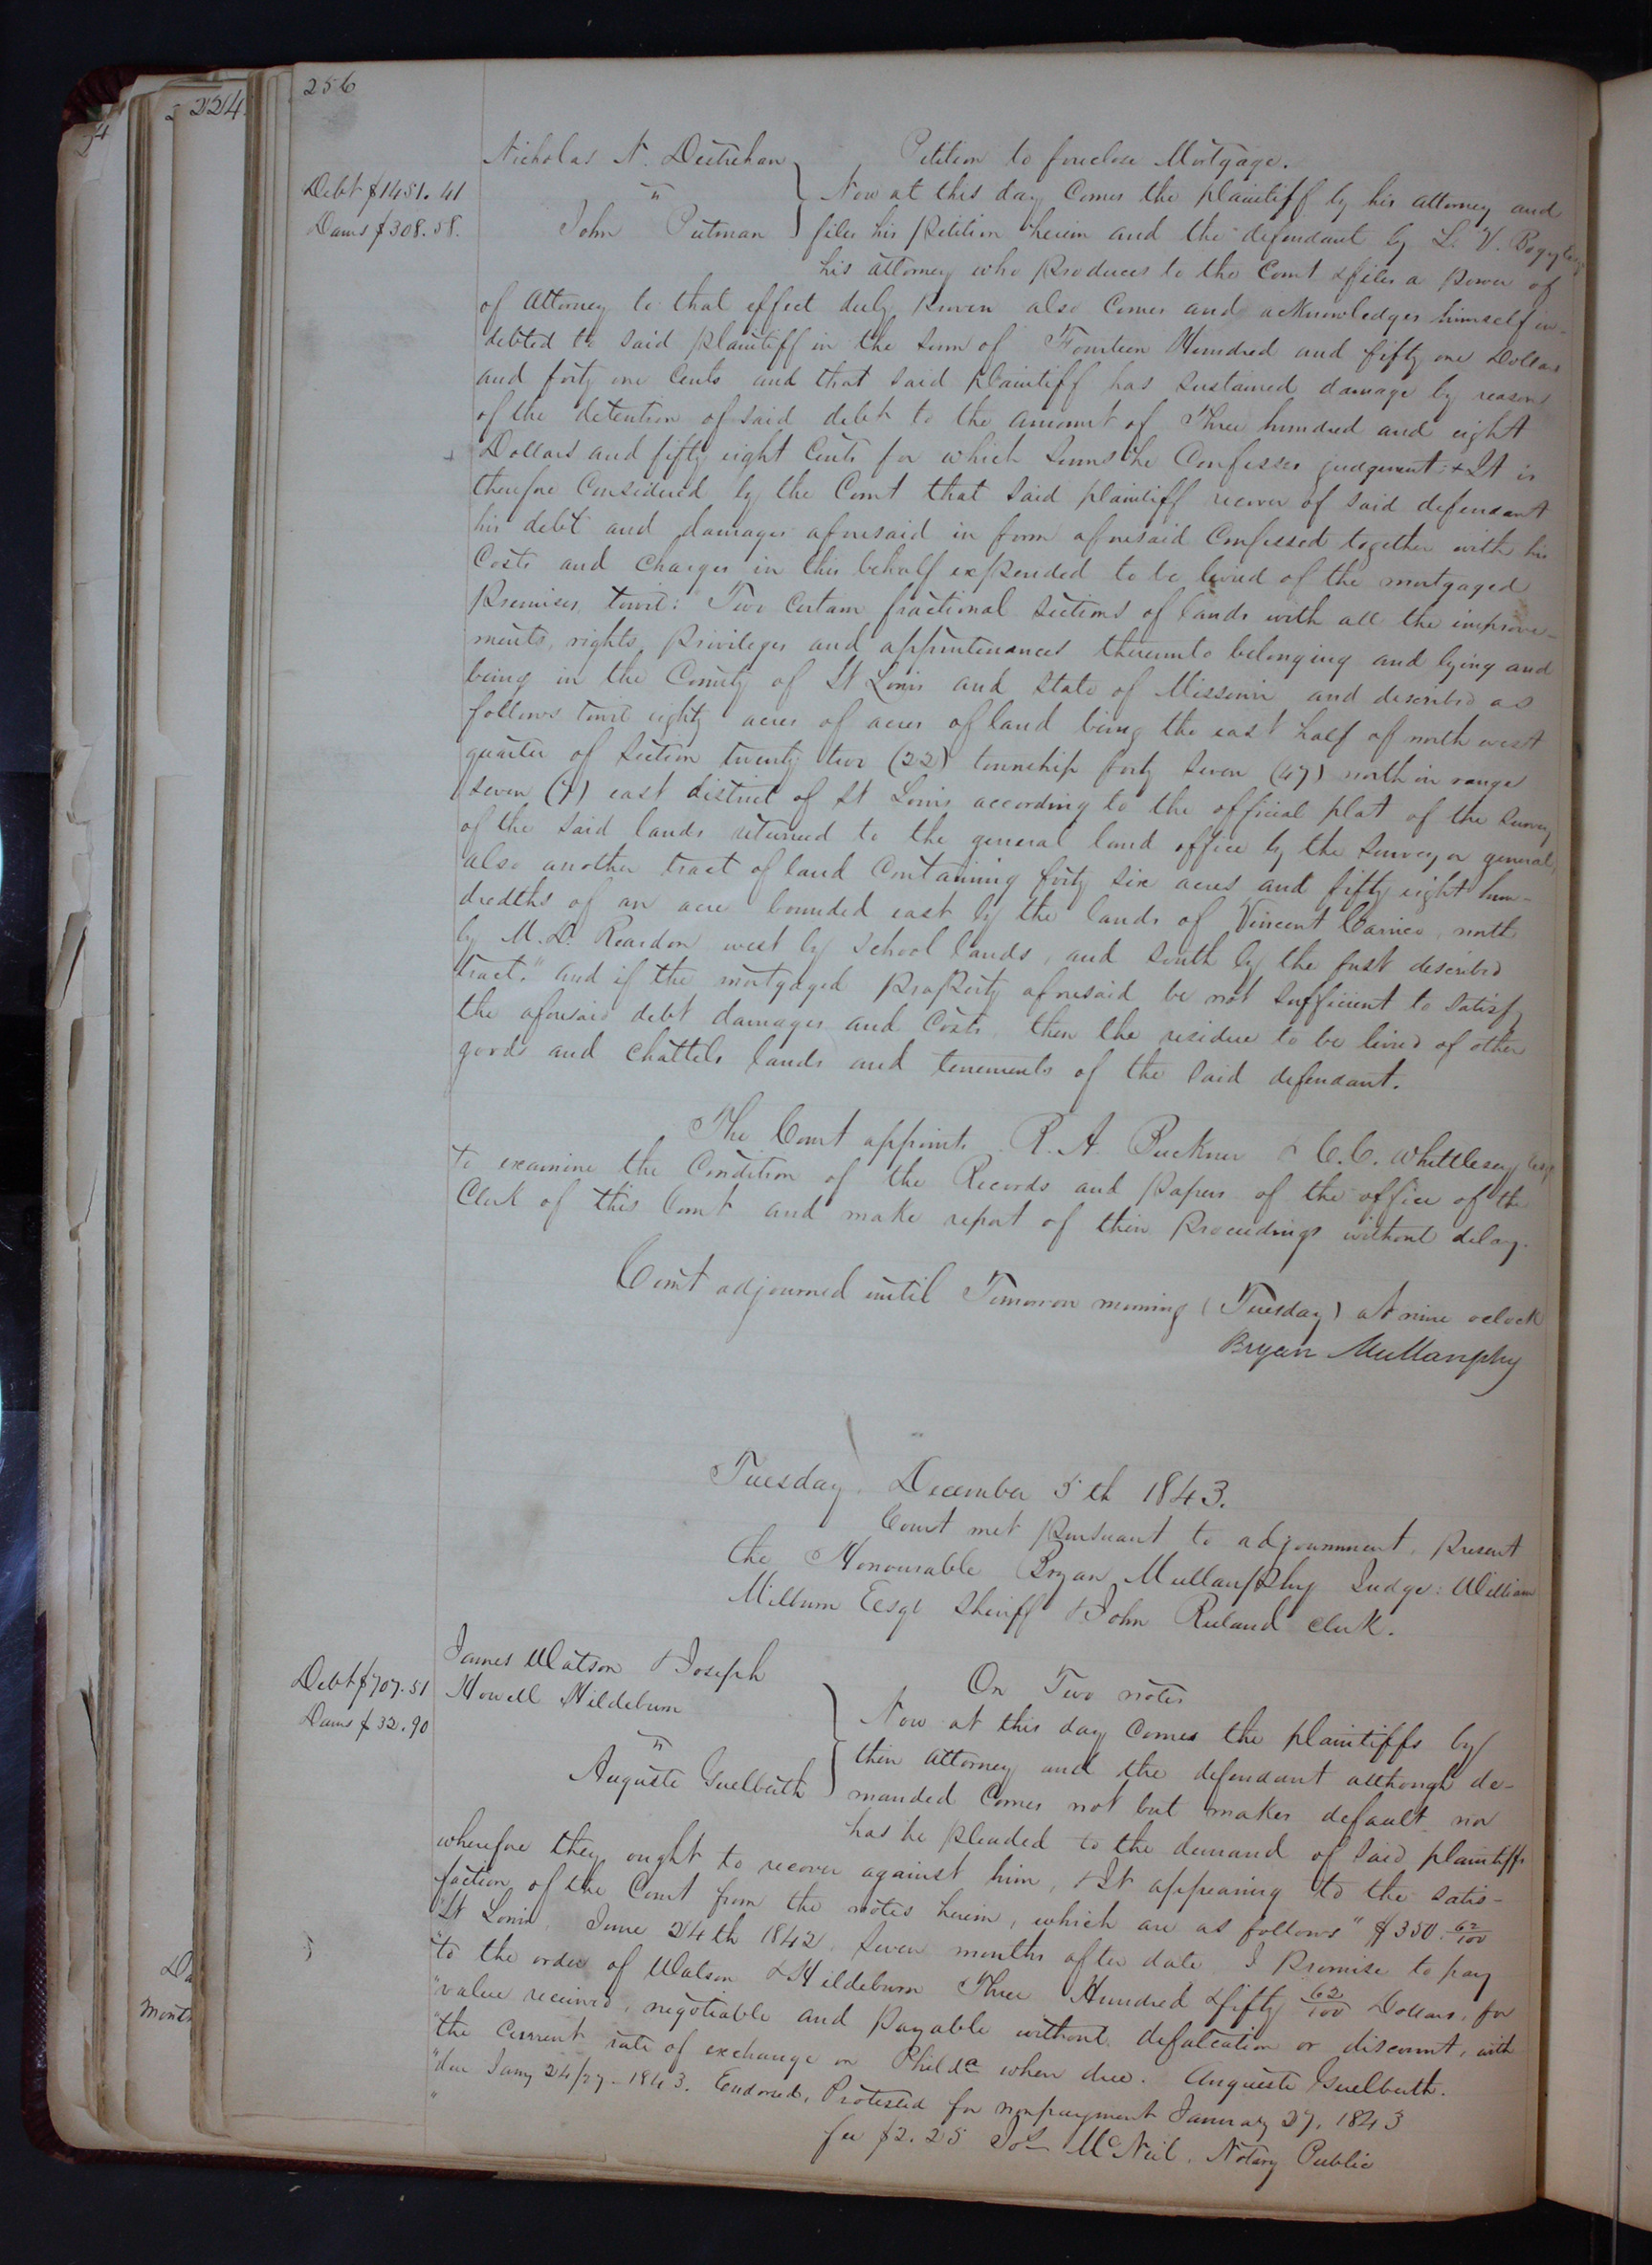 256
224
Nicholas N. Destrehan
vs
John Putman
Debt $1451.41
Dams $308.58.
Petition to foreclose Mortgage.
Now at this day Comes the plaintiff by his attorney and
files his petition herein and the defendant by L. V. Bogy Esq
his attorney who produces to the Court & files a power of
of Attorney to that effect duly proven also Comes and acknowledges himself in-
debted to said plaintiff in the sum of Fourteen Hundred and fifty one Dollars
and forty one Cents and that said plaintiff has sustained damage by reason
of the detention of said debt to the amount of Three hundred and eight
Dollars and fifty eight Cents for which sums he Confesses judgment; & It is
therefore Considered by the Court that said plaintiff recover of said defendant
his debt and damages aforesaid in form aforesaid Confessed together with his
Costs and Charges in this behalf expended to be levied of the mortgaged
Premises, towit: Two Certain fractional sections of lands with all the improve-
ments, rights, Privileges and appurtenances thereunto belonging and lying and
being in the County of St Louis and state of Missouri and described as
follows towit eighty acres of acres of land being the east half of north west
quarter of Section twenty two (22) township forty seven (47) north in range
seven (7) east district of St Louis according to the official plat of the survey
of the said lands returned to the general land office by the surveyor general,
also another tract of land Containing forty six acres and fifty eight hun-
dredths of an acre bounded east by the lands of Vincent Carrico, north
by M. D. Reardon west by school lands, and south by the first described
tract." And if the mortgaged property aforesaid be not sufficient to satisfy
the aforesaid debt damages and Costs, then the residue to be levied of other
goods and chattels lands and tenements of the said defendant.
The Court appoints R. A. Buckner & C. C. Whittlesey Esqs
to examine the Condition of the Records and papers of the office of the
Clerk of this Court and make report of their proceedings without delay.
Court adjourned until Tomorrow morning (Tuesday) at nine oclock
Bryan Mullanphy
Tuesday. December 5th 1843.
Court met pursuant to adjournment, Present
the Honourable Bryan Mullanphy Judge: William
Milburn Esqr Sheriff & John Ruland Clerk.
James Watson & Joseph
Howell Hildeburn
vs
Auguste Guelberth
Debt $707.51
Dams $32.90
On Two notes
Now at this day Comes the plaintiffs by
their attorney and the defendant although de-
manded Comes not but makes default nor
has he pleaded to the demand of said plaintiffs
wherefore they ought to recover against him, & It appearing to the satis-
faction of the Court from the notes herein, which are as follows "$350. 62/100
"St Louis, June 24th 1842. Seven months after date I Promise to pay
"to the order of Watson & Hildeburn Three Hundred & fifty 62/100 Dollars, for
"value received, negotiable and payable without defalcation or discount, with
"the Current rate of exchange on Philda when due. Auguste Guelberth.
"due Jany 24/27 - 1843. Endorsed, Protested for nonpayment January 27, 1843
" fee $2.25 Jos McNeil, Notary Public
Da
Month